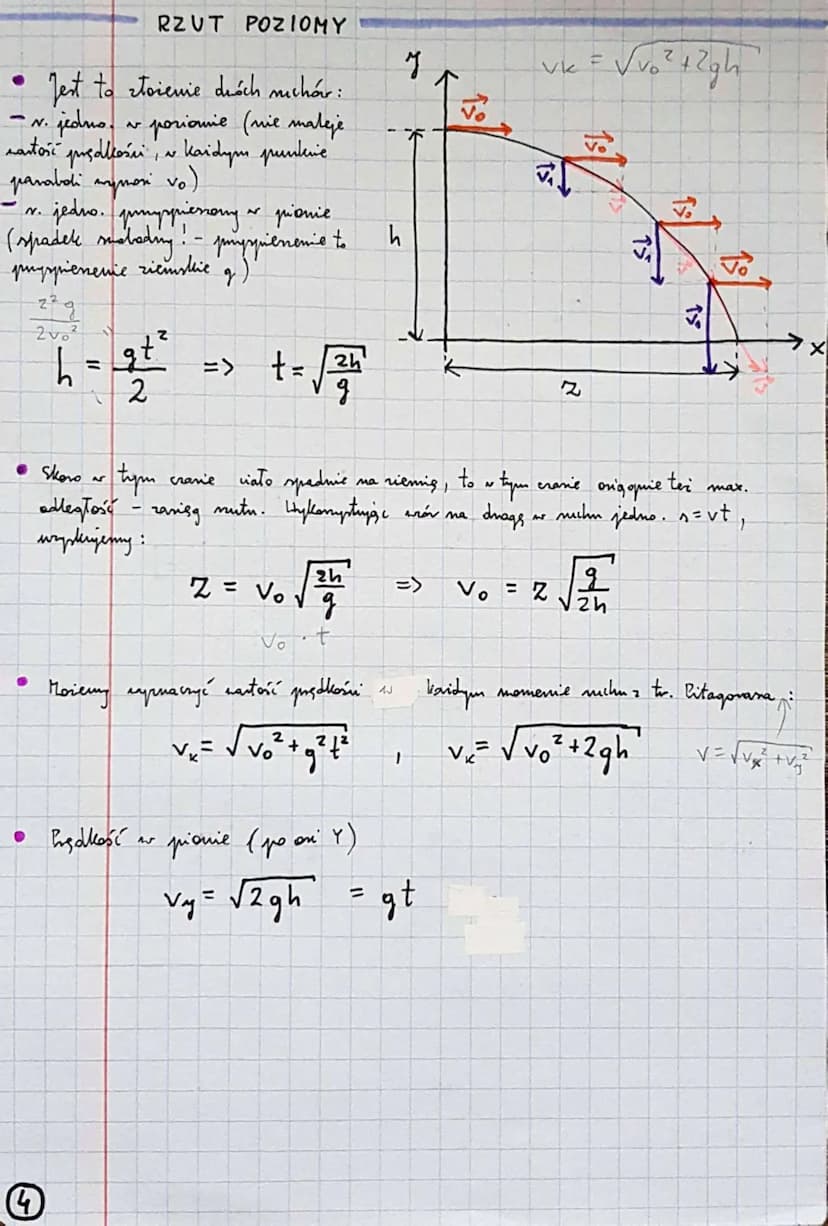 RZUT POZIOMY
• Jest to złożenie dwóch ruchów:
– r. jedno. w poziomie (nie maleje
wartość prędkości, w każdym punkcie
paraboli wynosi v₀)
– r. jedno. przyspieszony w pionie
(spadek swobodny! – przyspieszenie to
przyspieszenie ziemskie g)
vk = √(v₀² + 2gh)
y
v₀
v₀
v₁
v
v₀
v₁
v
v₀
v₁
v
h
x
z
z²g / 2v₀²
h = gt²/2 => t = √(2h/g)
• Skoro w tym czasie ciało spadnie na ziemię, to w tym czasie osiągnie też max.
odległość – zasięg rzutu. Wykorzystując wzór na drogę w ruchu jedno. s = vt,
uzyskujemy:
z = v₀ √(2h/g) => v₀ = z √(g/2h)
v₀ · t
• Możemy wyznaczyć wartość prędkości w każdym momencie ruchu z tw. Pitagorasa:
vₖ = √(v₀² + g²t²) , vₖ = √(v₀² + 2gh)
v = √(vₓ² + v_y²)
• Prędkość w pionie (po osi Y)
v_y = √(2gh) = gt
4